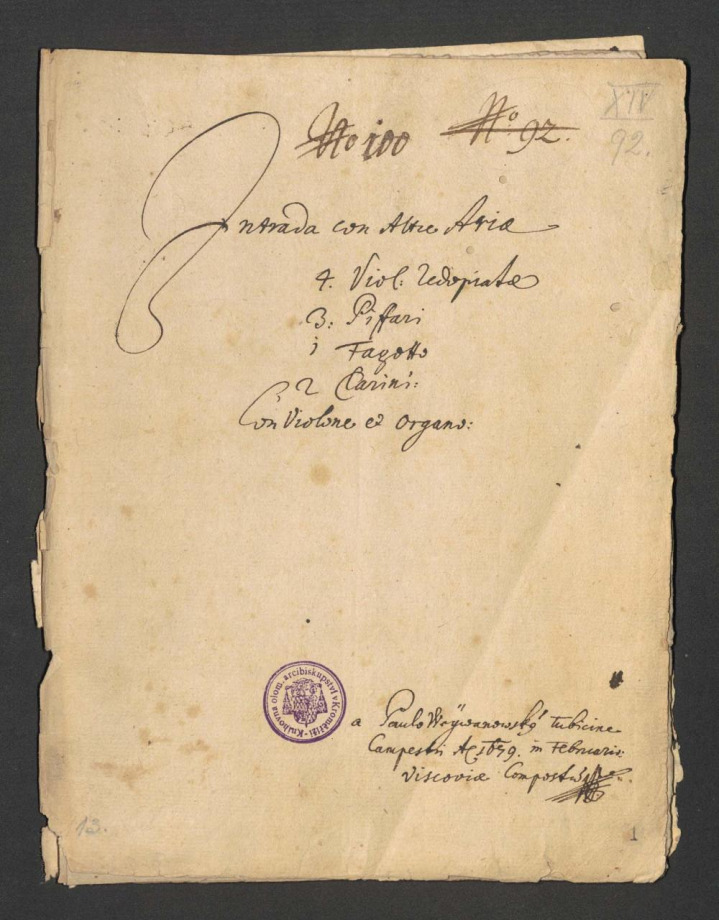 No 100 No 92.
XIV
92.
Intrada con Altre Ariæ
4. Viol: redopiatæ
3: Piffari
1 Fagotto
2 Clarini:
Con Violone et Organo:
Knihovna olom. arcibiskupství v Kroměříži
a Paulo Weÿwanowskÿ tubicine
Campestri Aō 1679. in Februario
Viscoviæ
13.
1